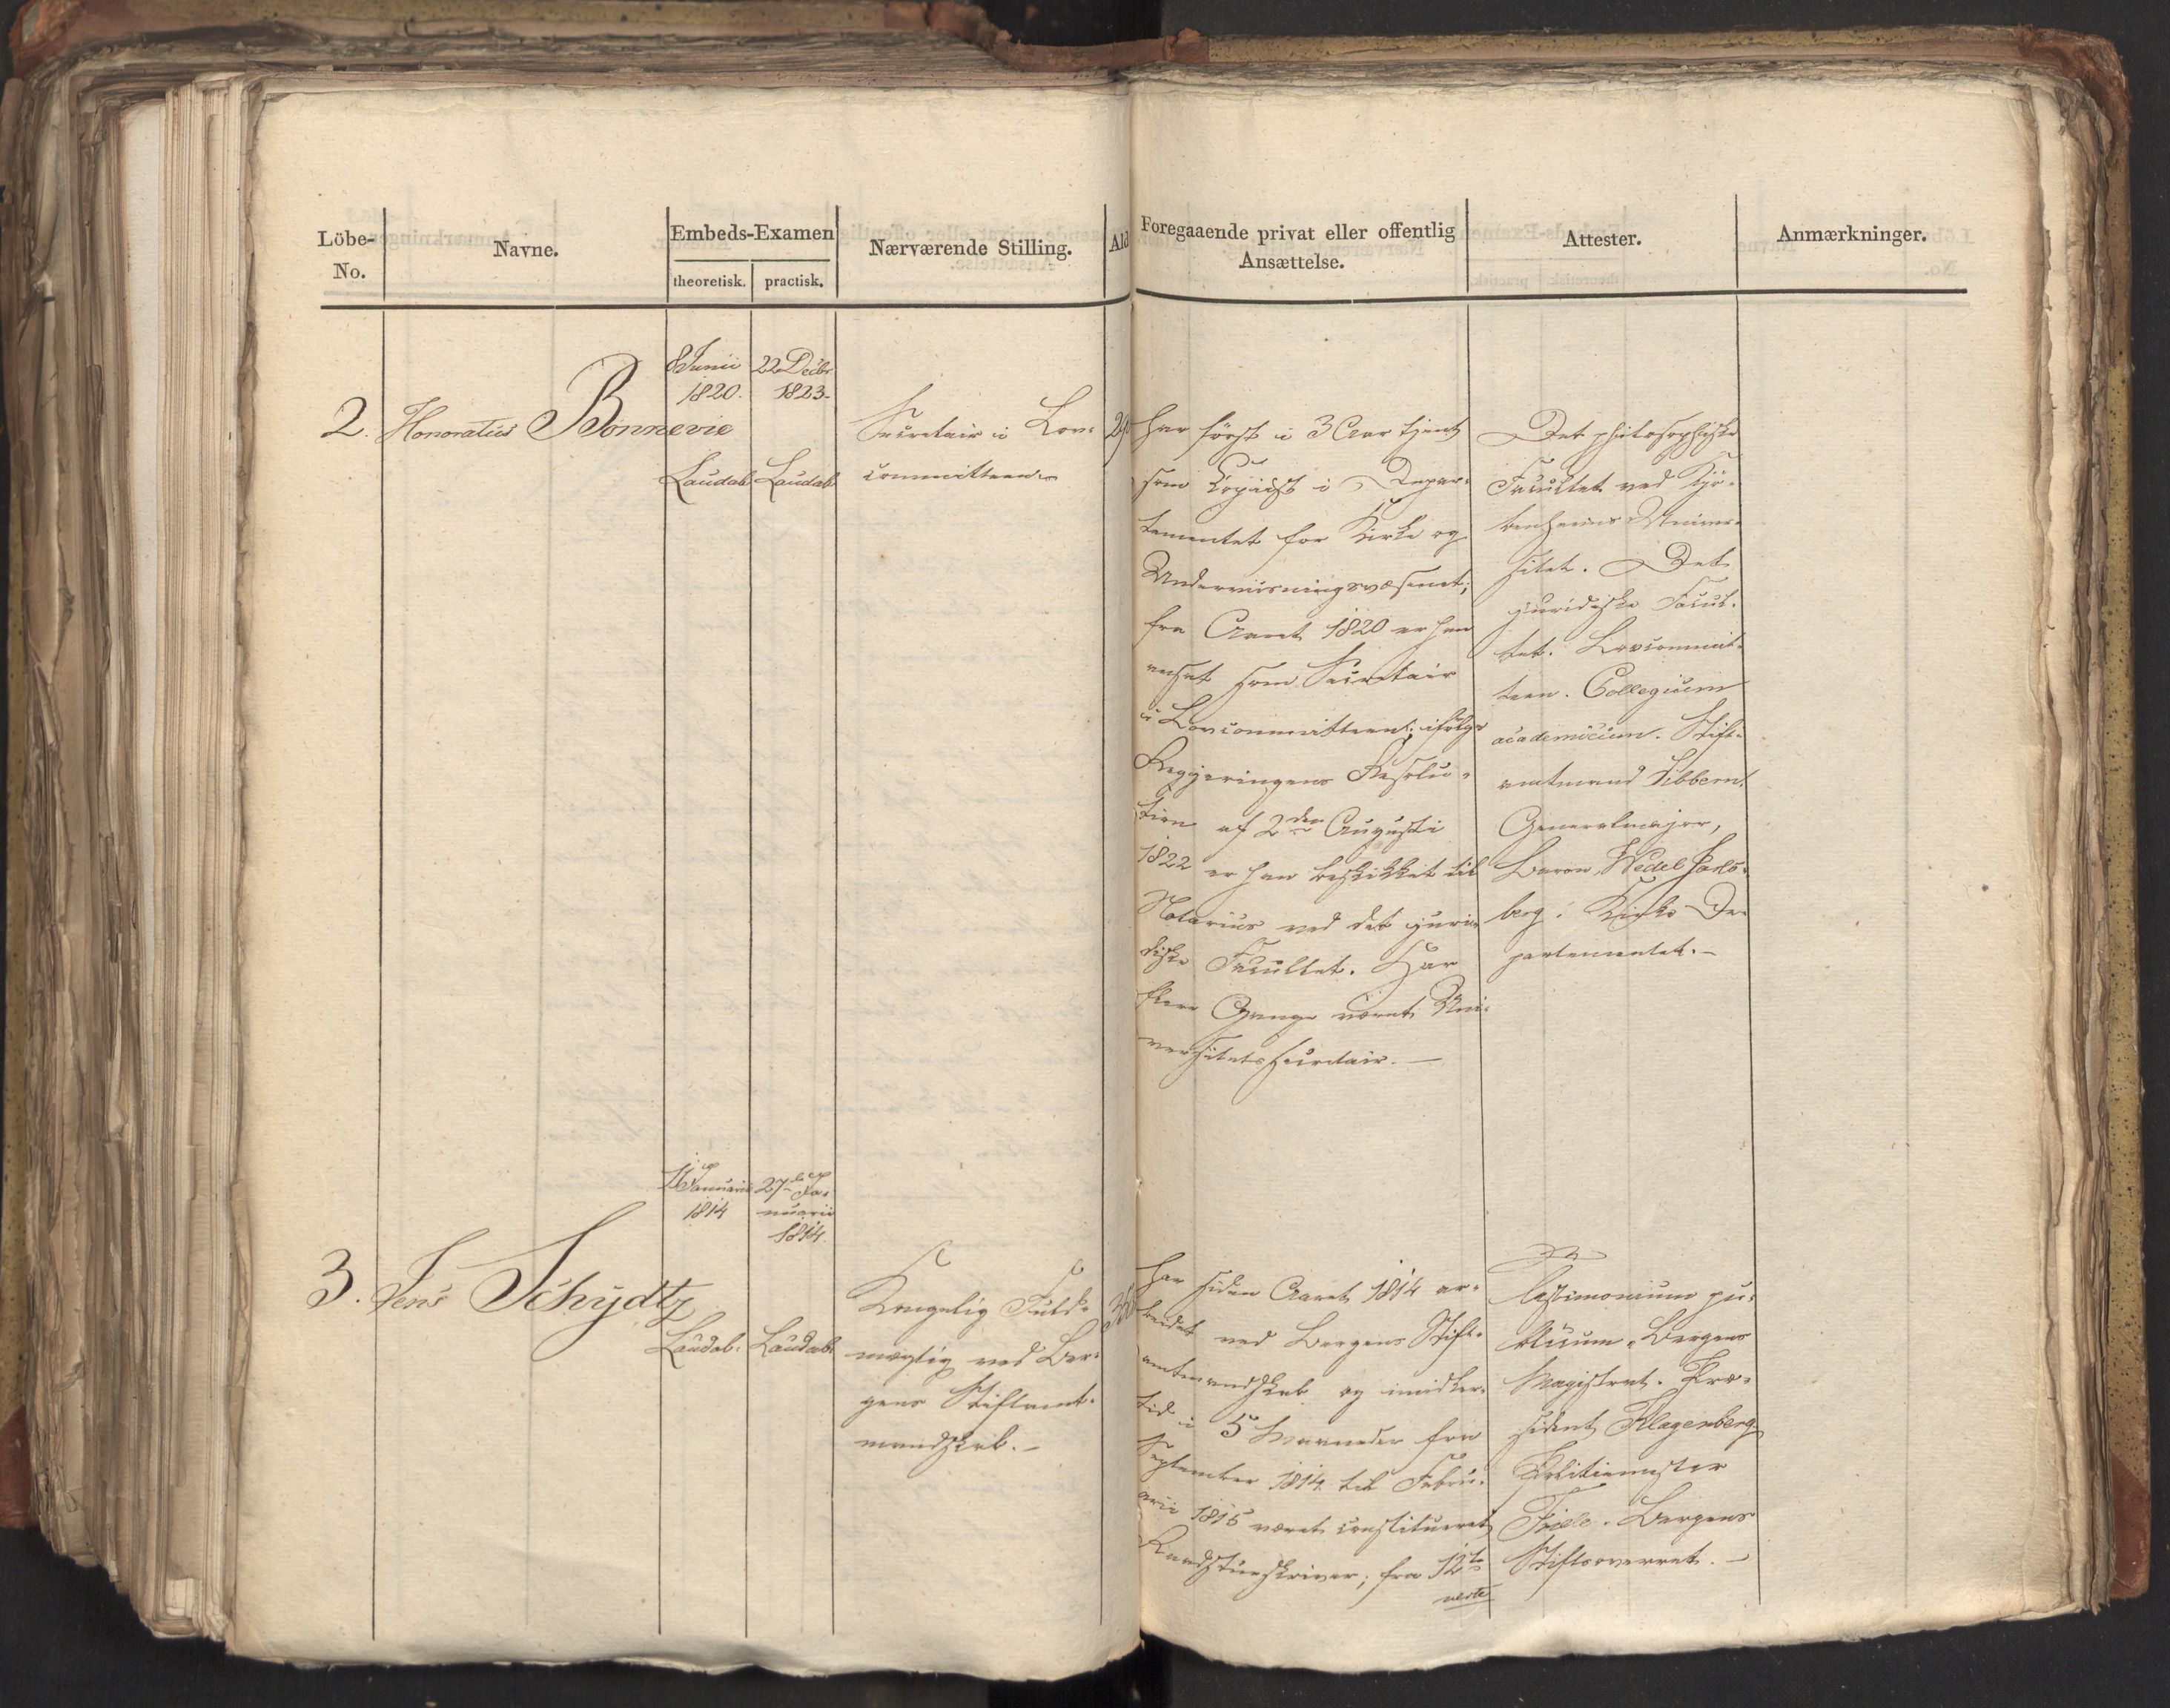 Löbe-No.
Navne.
Embeds-Examen
theoretisk.
practisk.
Nærværende Stilling.
Ald
Foregaaende privat eller offentlig
Ansættelse.
Attester.
Anmærkninger.
8 Junii
1820.
22 Decbr
1823.
2. Honoratus Bonnevie
Laudab.
Laudab.
Secretair i Lov-
committeen.
29
har først i 3 Aar tjent
som Copiist i Depar-
tementet for Kirke og
Underviisningsvæsenet;
fra Aaret 1820 er han
ansat som Secretair
i Lovcommitteen; ifølge
Regjeringens Resolu-
tion af 2den Augusti
1822 er han beskikket til
Notarius ved det juri-
diske Facultet. Har
flere Gange været Uni-
versitetssecretair. —
Det philosophiske
Facultet ved Kjø-
benhavns Univer-
sitet. Det
juridiske Facul-
tet. Lovcommit-
teen. Collegium
academicum. Stift-
amtmand Sibbern.
Generalmajor,
Baron Wedel Jarls-
berg. Kirke De-
partementet. —
11 Januarii
1814
27de Ja-
nuarii
1814.
3. Jens Schydtz
Laudab.
Laudab.
Kongelig Fuld-
mægtig ved Ber-
gens Stiftamt-
mandskab. —
35
Har siden Aaret 1814 ar-
beidet ved Bergens Stift-
amtmandskab og imidler-
tid i 5 Maaneder fra
September 1814 til Febru-
arii 1815 været constitueret
Raadstueskriver; fra 12te
verte
Testimonium pu-
blicum. Bergens
Magistrat. Præ-
sident Klagenberg
Politiemester
Friele. Bergens
Stiftsoverret. —